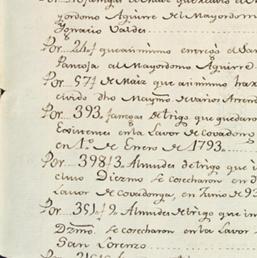 yordomo Aguirre del Mayordomo
Horacio Valdes
Por 24f que asimismo entregò el
Pantoja al Mayordomo Aguirre
Por 57f de Maiz que asimismo
civido dho Maymo de varios Arren
Por 393 fanegas de trigo que quedaron
Existentes en la Lavor de Covadonga
en 1º de Enero de 1793.
Por 398f3 Almudes de trigo que
cluio Diezmo se cosecharon en
Lavor de Covadonga, en Junio de 93
Por 351f2 Almudes de trigo que in
Dzmo. se cosecharon en la Lavor
San Lorenzo.